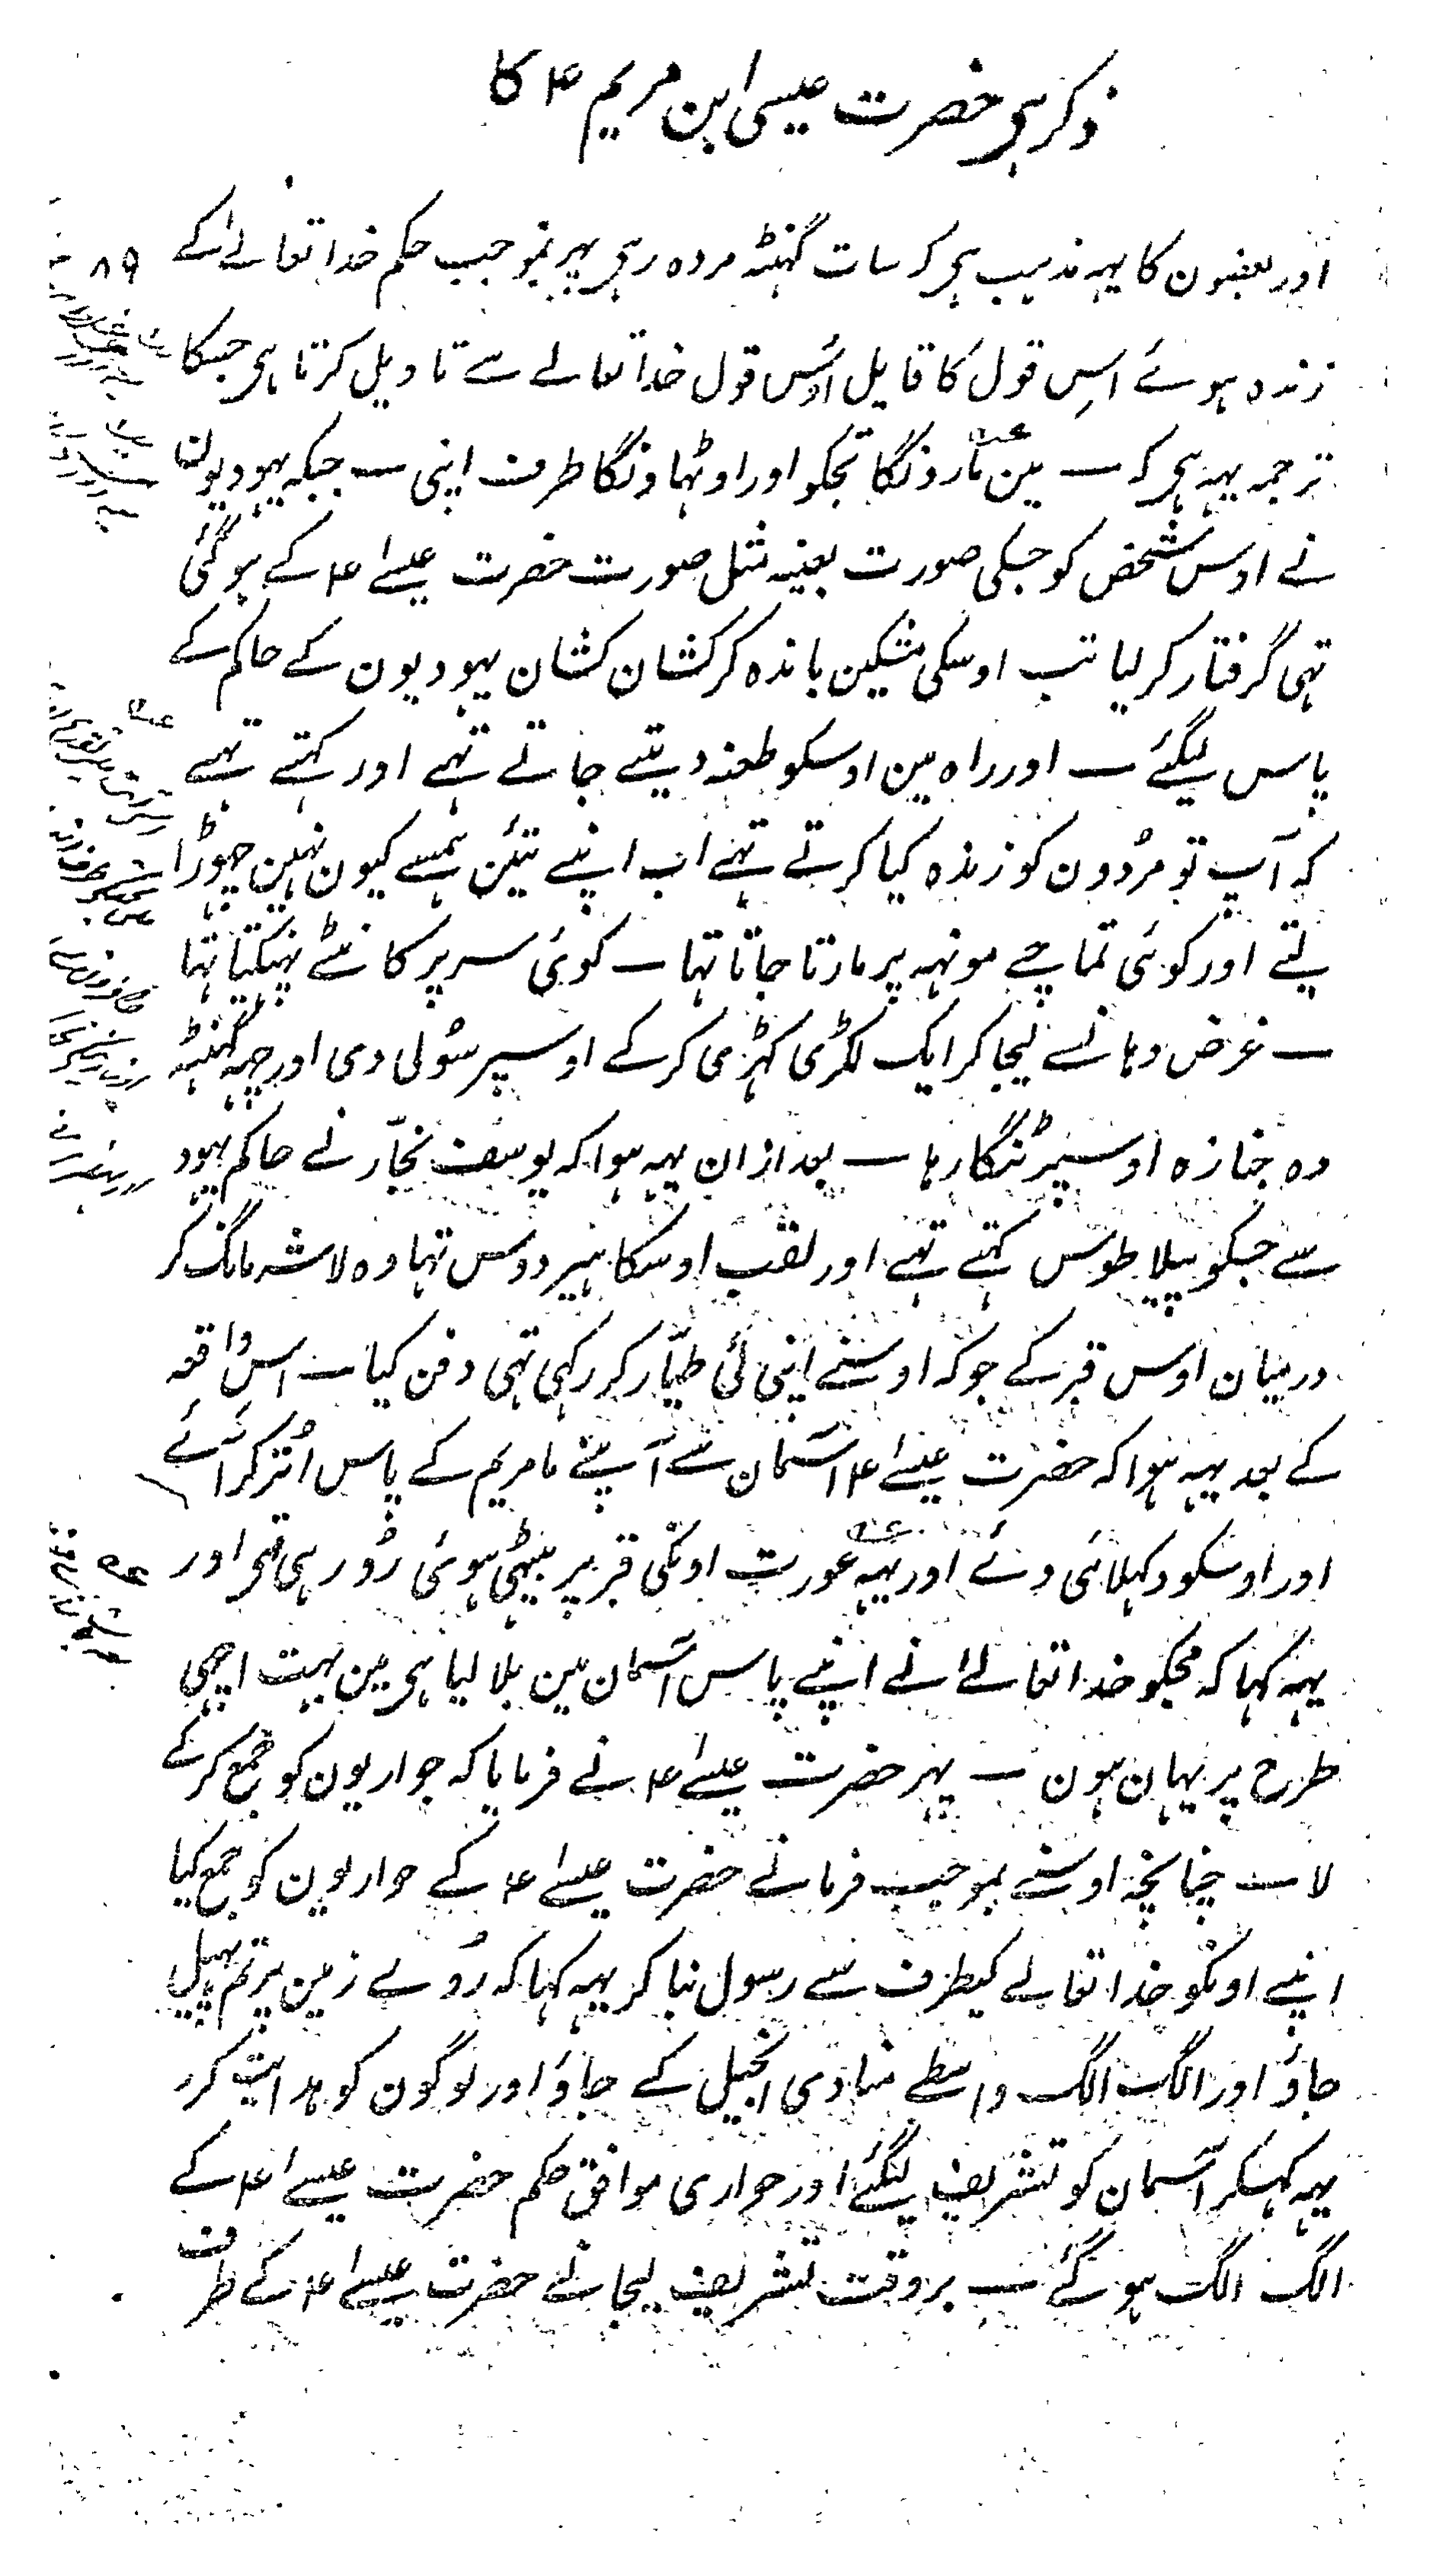 ذکر ہی حضرت عیسی ابن مریم ۴ کا
۸۹
اور بعضون کا یہہ مذہب ہی کہ سات گہنٹہ مردہ رہی پہر بموجب حکم خدا تعالےٰ کے
زندہ ہوئے اسِ قول کا قایل اوُس قول خدا تعالے سے تاویل کرتا ہی جسکا
ترجمہ یہہ ہی کہ ــ مین مارونگا تجکو اور اوٹہاونگا طرف اپنی ــ جبکہ یہودیون
نے اوس شخص کو جسکی صورت بعینہ مثل صورت حضرت عیسےٰ ۴ کے ہو گئی
تہی گرفتار کر لیا تب اوسکی مشکین باندہ کر کشان کشان یہودیون کے حاکم کے
پاس لیگئے ــ اور راہ مین اوسکو طعنہ دیتے جاتے تہے اور کہتے تہے
کہ آپ تو مرُدون کو زندہ کیا کرتے تہے اب اپنے تیئن ہمسے کیون نہین چہوڑا
لتے اور کوئی تماچے مونہہ پر مارتا جاتا تہا ــ کوئی سر پر کانٹے پہنکتا تہا
ــ غرض وہانسے لیجا کر ایک لکڑی کہڑی کر کے اوسپر سوُلی دی اور چہہ گہنٹہ
وہ جنازہ اوسپر ٹنگا رہا ــ بعد ازان یہہ ہوا کہ یوسف نجّار نے حاکم یہود
سے جسکو پیلاطوس کہتے تہے اور لقب اوسکا ہیرودوس تہا وہ لاشہ مانگ کر
درمیان اوس قبر کے جو کہ اوسنے اپنی لئی طیّار کر رکہی تہی دفن کیا ــ اس واقعہ
کے بعد یہہ ہوا کہ حضرت عیسےٰ ۴ آسمان سے اپنے ما مریم کے پاس اُتر کر آئے
اور اوسکو دکہلائی دئے اور یہہ عورت اونکی قبر پر بیٹہی ہوئی رُو رہی تہی اور
یہہ کہا کہ مجکو خدا تعالےٰ نے اپنے پاس آسمان مین بلا لیا ہی مین بہت اچہی
طرح پر یہان ہون ــ پہر حضرت عیسےٰ ۴ نے فرمایا کہ حواریون کو جمع کر کے
لا ــ چنانچہ اوسنے بموجب فرمانے حضرت عیسےٰ ۴ کے حواریون کو جمع کیا
اپنے اونکو خدا تعالے کیطرف سے رسول بنا کر یہہ کہا کہ روُے زمین پر تم پہیل
جاؤ اور الگ الگ واسطے منادی انجیل کے جاؤ اور لوگون کو ہدایت کرو
یہہ کہکر آسمان کو تشریف لیگئے اور حواری موافق حکم حضرت عیسےٰ ۴ کے
الگ الگ ہو گئے ــ بروقت تشریف لیجانے حضرت عیسےٰ ۴ کے طرف